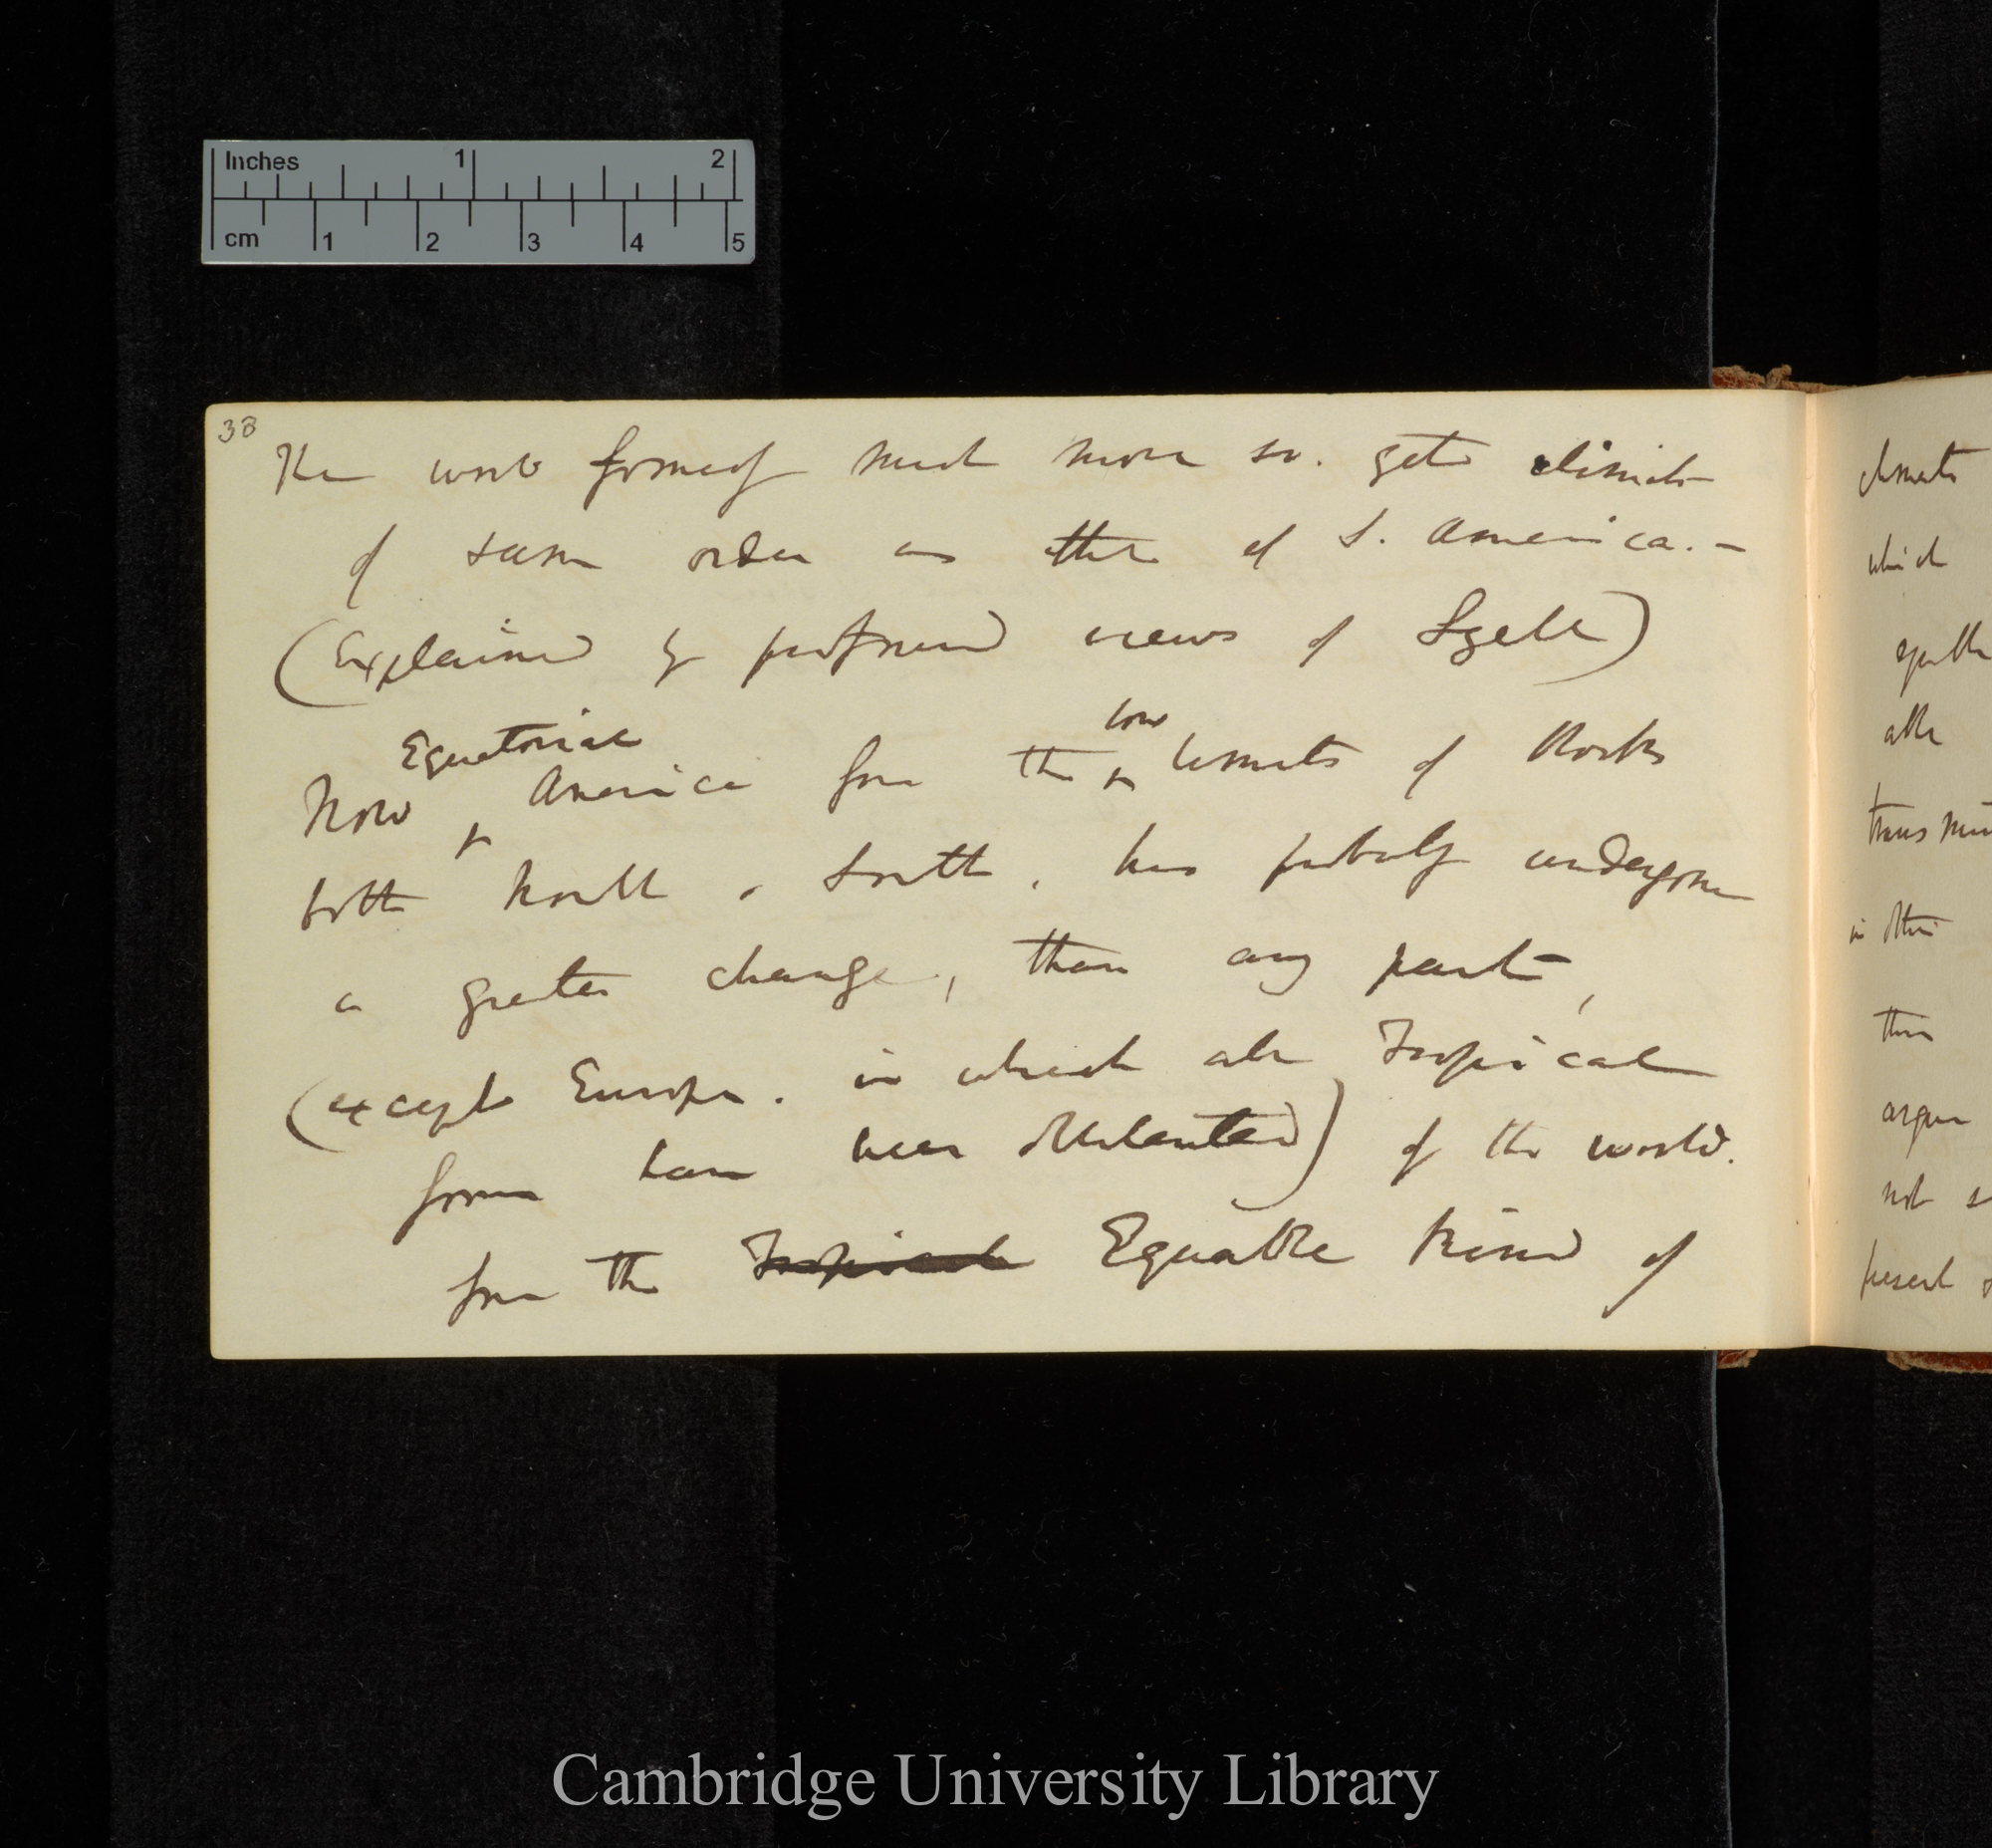 Inches 1 2
cm 1 2 3 4 5
38
The world formerly much more so. gets climate
of same order as that of S. America. —
(Explained by profound views of Lyell)
Equatorial
low
Now America from the limits of Rocks
both North & South, has probably undergone
a greater change, than any part,
(except Europe. in which all Tropical
forms have been obliterated) of the world.
from the Tropical Equable kind of
climate
which
trans
in other
than
argue
not
present
Cambridge University Library